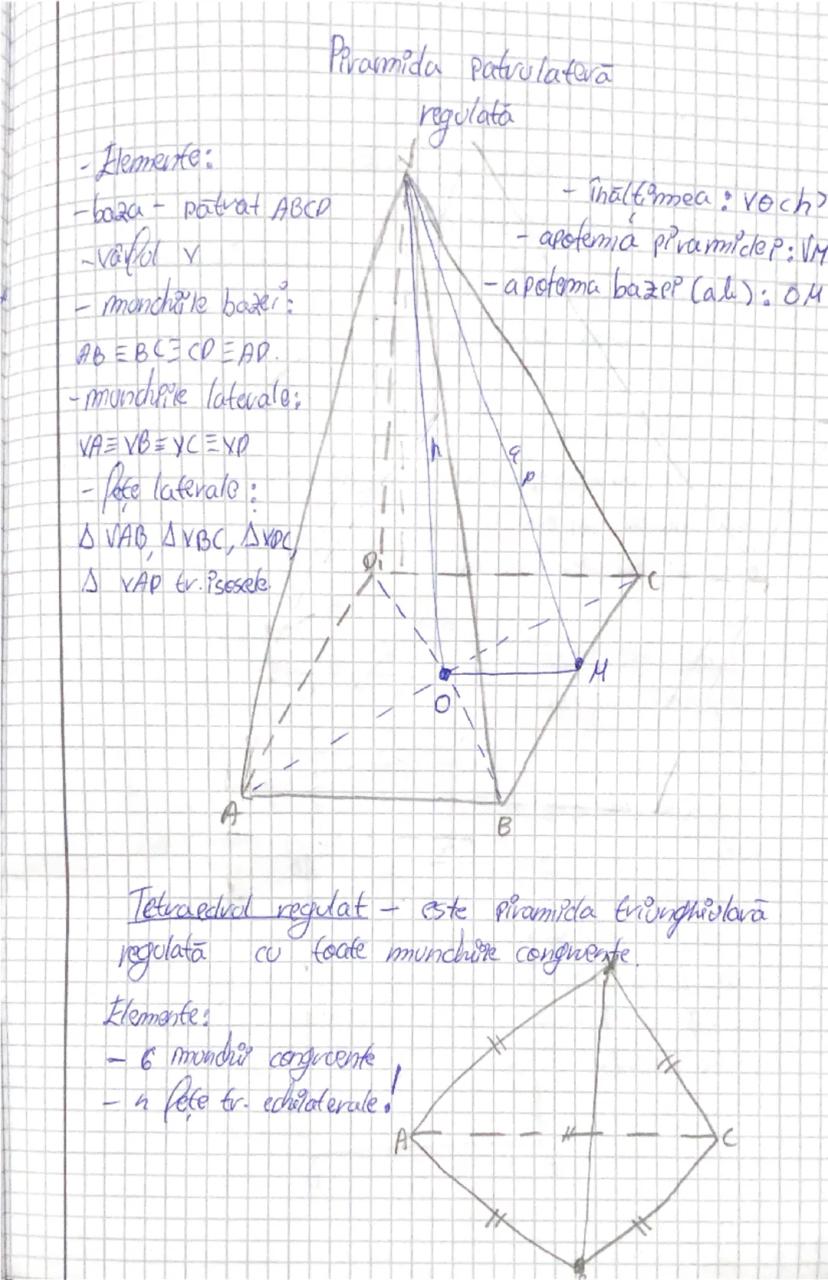 Piramida patrulateră
regulată
- Elemente:
- baza - pătrat ABCD
- vârful V
- munchiile bazei:
AB ≡ BC ≡ CD ≡ AD.
- munchiile laterale:
VA ≡ VB ≡ VC ≡ VD
- fețe laterale:
Δ VAB, Δ VBC, Δ VDC,
Δ VAD tr. isoscele
- înălțimea: VO (h)
- apotema piramidei: VM
- apotema bazei (ab): OM
V
h
a
p
D
C
O
M
A
B
Tetraedrul regulat - este piramida triunghiulară
regulată cu toate munchiile congruente.
Elemente:
- 6 munchii congruente
- 4 fețe tr. echilaterale!
A
C
B